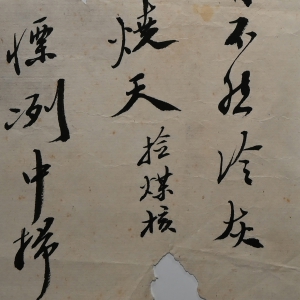 不然冷灰
燒天
捡煤核
慄冽中掃